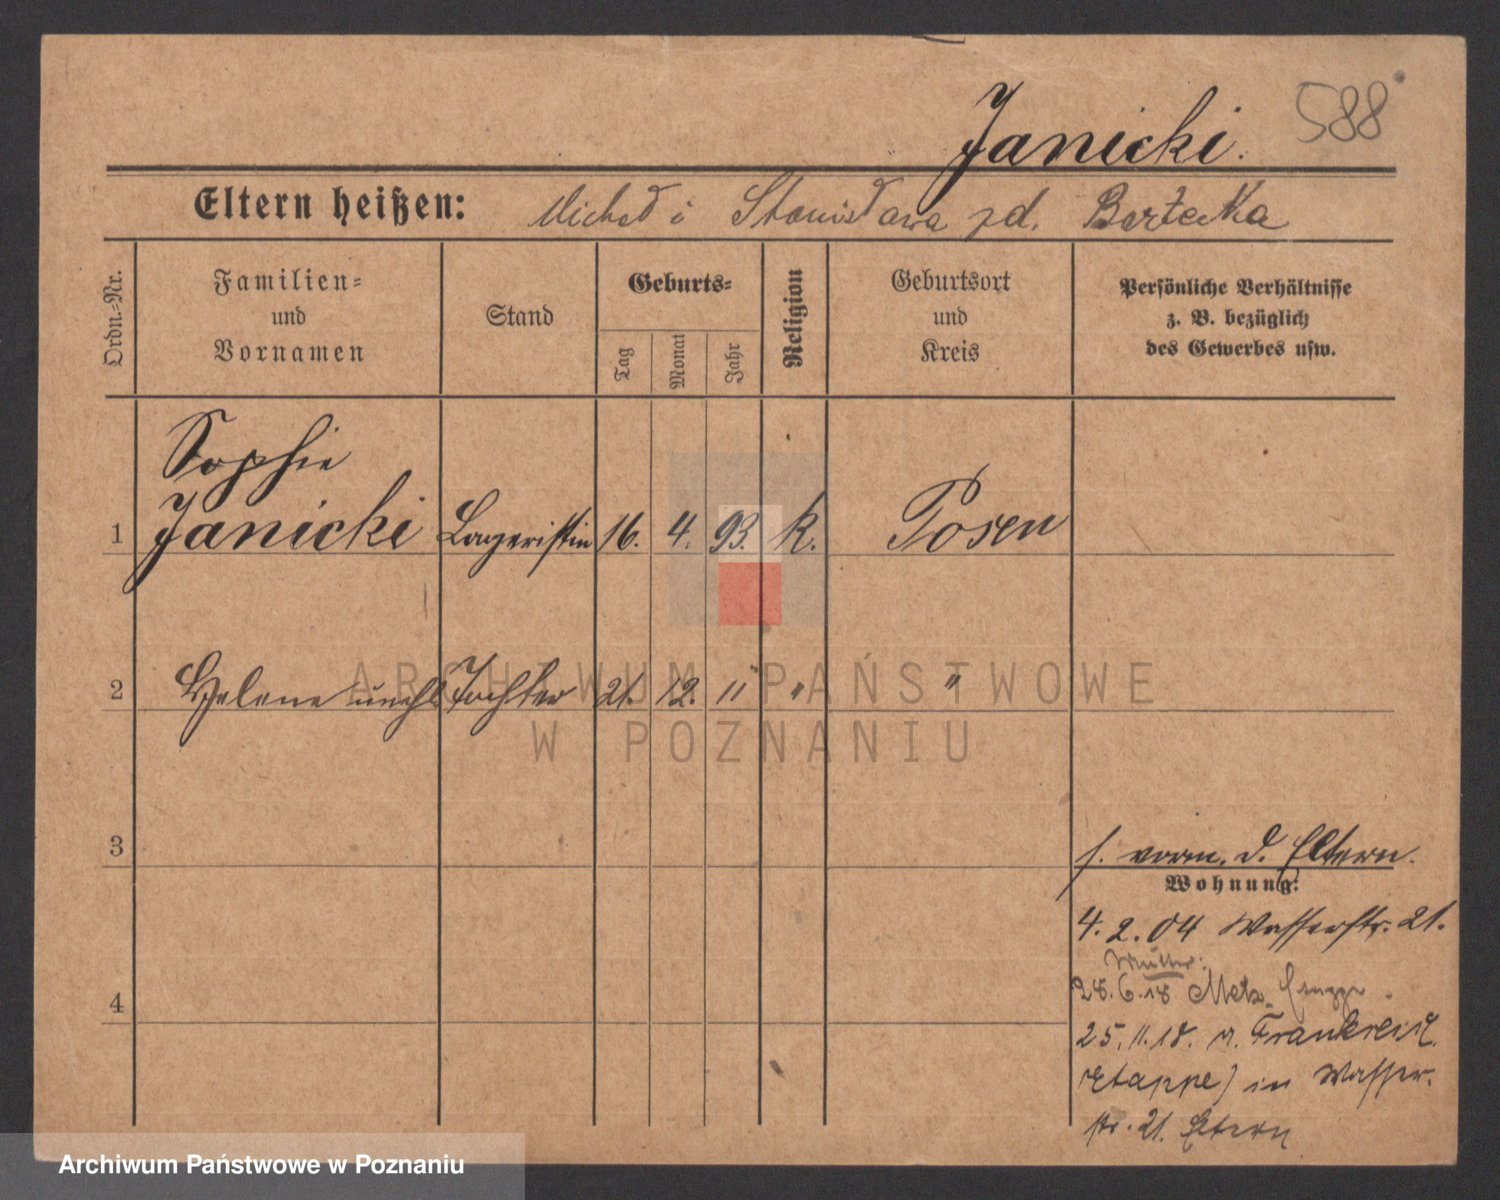 Janicki. 588
Eltern heißen: Michał i Stanisława zd. Bartecka
Ordn.-Nr.
Familien-
und
Vornamen
Stand
Geburts-
Tag
Monat
Jahr
Religion
Geburtsort
und
Kreis
Persönliche Verhältnisse
z. B. bezüglich
des Gewerbes usw.
Sophie
1 Janicki Lageristin 16. 4. 93. k. Posen
2 Helene unehl Tochter 21. 12. 11 " "
ARCHIWUM PAŃSTWOWE
W POZNANIU
3
s. vorm. d. Eltern.
Wohnung:
4. 2. 04 Wasserstr. 21.
Mutter:
28. 6. 18 Metz
4
25. 11. 18. v. Frankreich
Etappe) in Wasser-
str. 21. Eltern
Archiwum Państwowe w Poznaniu